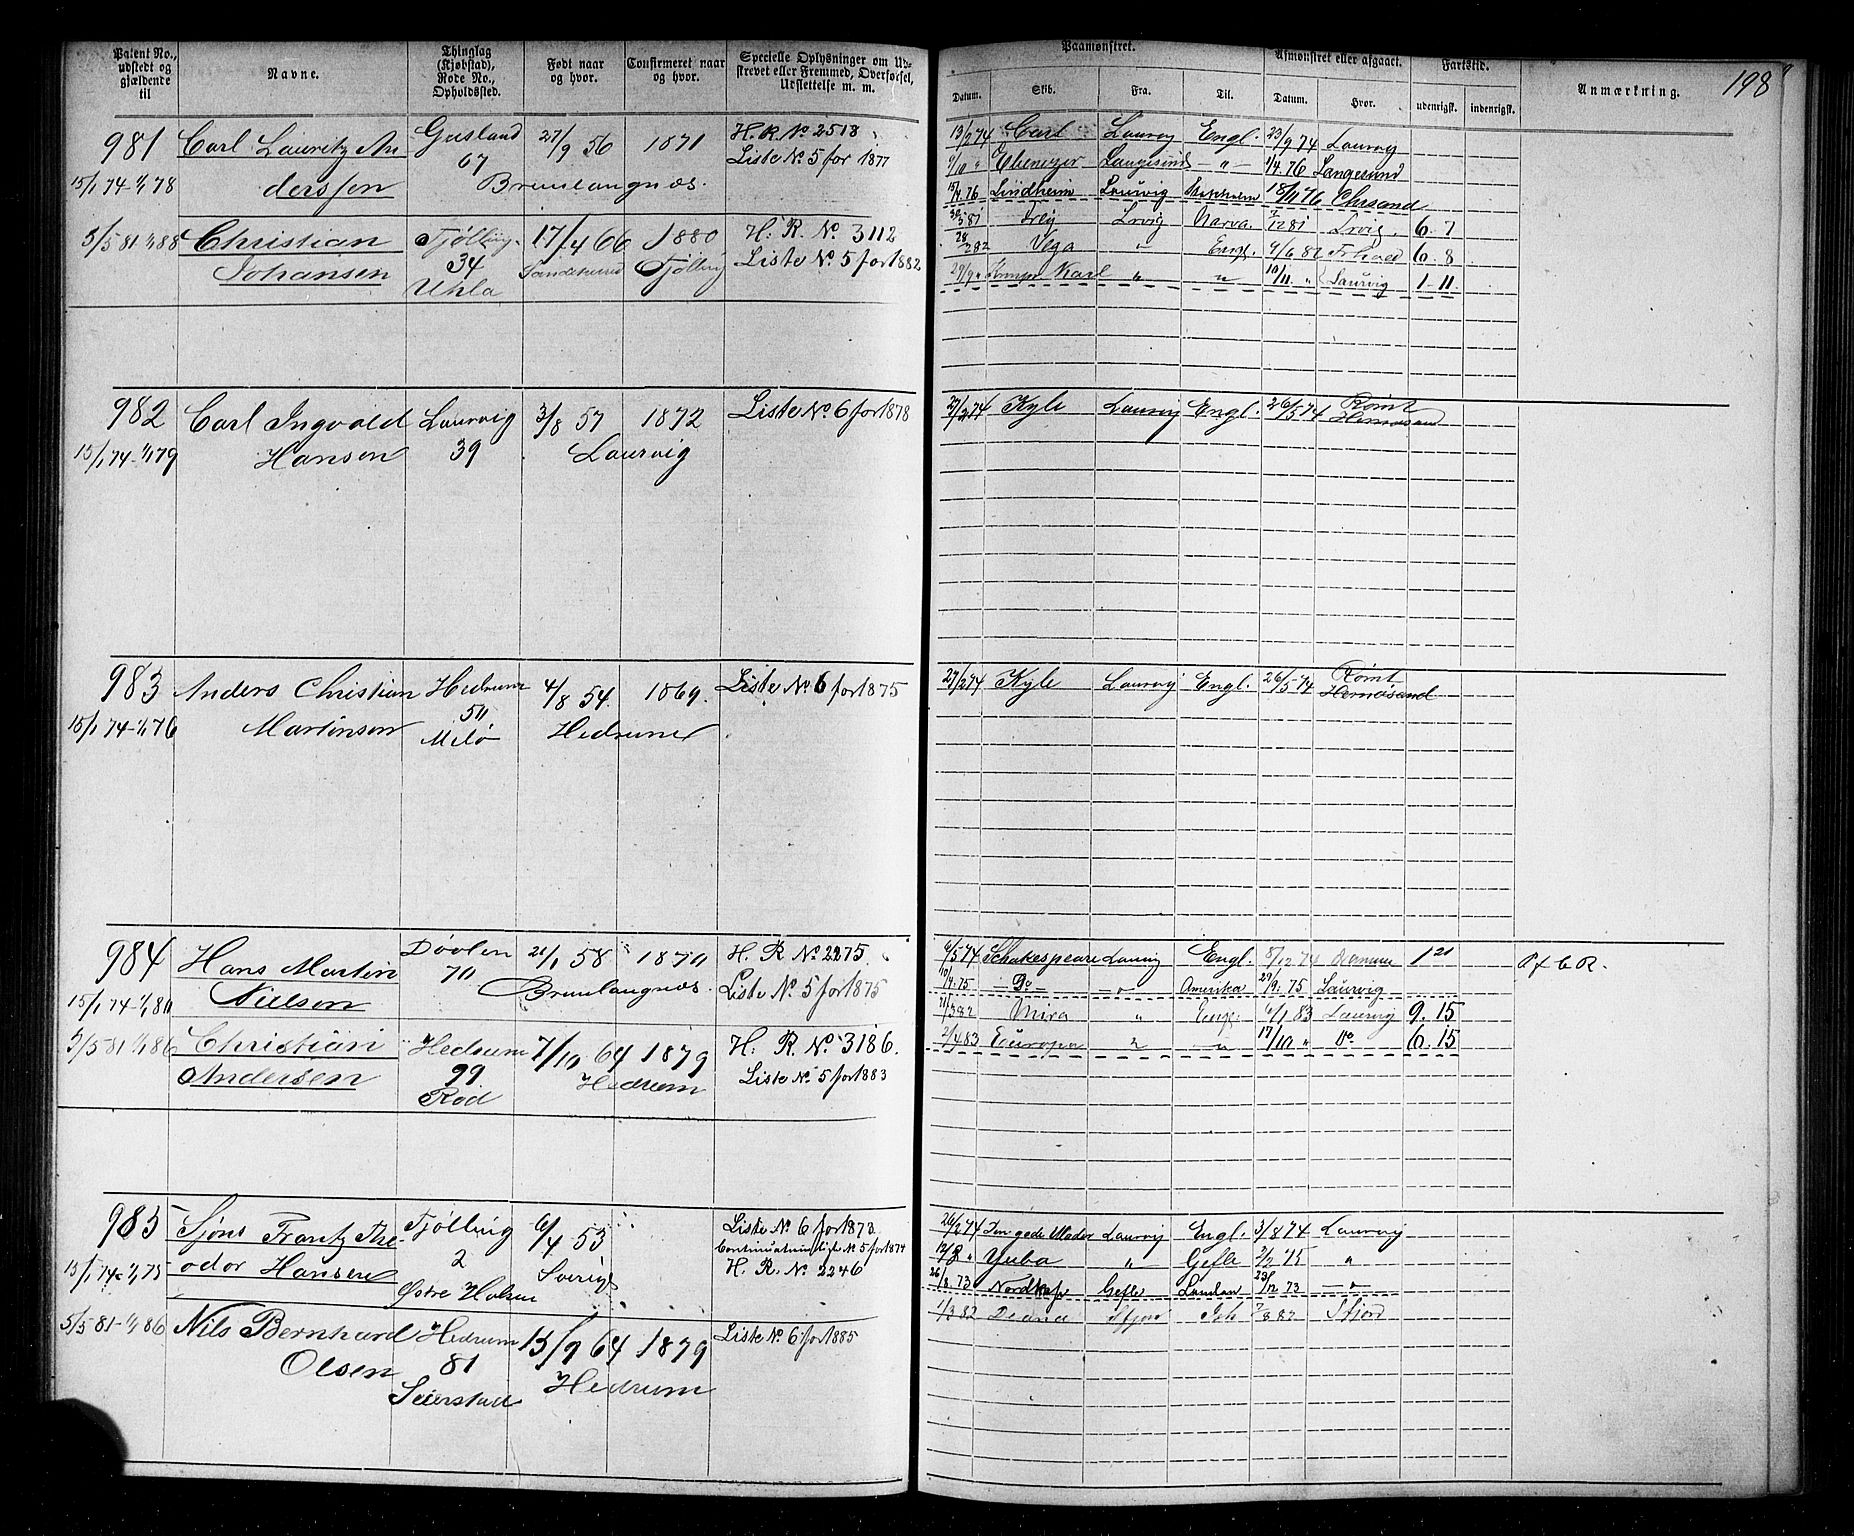 Patent No., udstedt og gjældende til
Navne.
Thinglag (Kjøbstad), Rode No., Opholdssted.
Født naar og hvor.
Confirmeret naar og hvor.
Specielle Oplysninger om Udskrevet eller Fremmed, Overførsel, Udslettelse m. m.
Paamønstret.
Datum. Skib. Fra. Til.
Afmønstret eller afgaaet.
Datum. Hvor.
Fartstid.
udenrigsk. indenrigsk.
Anmærkning.
198
981 Carl Lauritz An Gusland 27/9 56 1871 H. R. No 2513
07 Liste No. 5 for 1877
15/1 74-1/1 78 derssen Brunlangnæs.
13/2 74 Carl Laurvig Engl. 23/9 74 Laurvig
9/10 " Ebenezer Langesund -"- 1/4 76 Langesund
15/4 76 Lindheim Laurvig Stockholm 18/11 76 Chrsand
5/5 81 1/1 88 Christian Tjølling 17/4 66 1880 H. R. No. 3112
Johansen 34 Tjølling Liste No. 5 for 1882
Uhla
Lrvig Narva Lrvig. 6. 7
Vega " Engl. 9/6 82 Frhald 6. 8
Karl " " 10/11 " Laurvig 1-11
982 Carl Ingvald Laurvig 3/8 57 1872 Liste No. 6 for 1878
15/1 74-1/1 79 Hansen 39 Laurvig
27/2 74 Kyle Laurvig Engl. 26/5 74 Rømt
Hernøsand
983 Anders Christian Hedrum 4/8 54. 1869. Liste No 6 for 1875
15/1 74-1/1 76 Martinsen 50 Hedrum
Melø
27/2 74 Kyle Laurvig Engl. 26/5 74 Rømt
Hernøsand
984 Hans Martin 21/1 58 1870 H. R. No 2275.
70
15/1 74-1/1 80 Nielsen Brunlangnæs. Liste No. 5 for 1875
6/5 74 Schakespeare Laurvig Engl. 8/12 74 1 21
10/4 75 -Do- -"- Amerika 29/9. 75 Laurvig
Engl. 6/1 83 Laurvig 9. 15
2/4 83 Europa " -"- 17/10 " Do 6. 15
5/5 81 1/1 86 Christian Hedrum 7/10 64 1879 H. R. No. 3186.
Andersen 99 Hedrum Liste No. 5 for 1883
Rød
985 Sjøns Frantz The Tjølling 6/4 53 Liste No. 6 for 1873
Continuationsliste No 5 for 1874
15/1 74-1/1 75 odor Hansen 2 Sverige H. R. No. 2246
Østre Halsen
26/2 74 Den gode Moder Laurvig Engl. 3/8 74 Laurvig
12/8 " Yuba " Gefle 2/2 75 "
26/8 73 Nordkap Gefle London 23/12 73 -"-
1/3 82 Diana Sfjord 7/8 82 Sfjord
5/5 81-1/1 86 Nils Bernhard Hedrum 15/9 64 1879 Liste No. 6 for 1885
Olsen 81 Hedrum
Seierstad